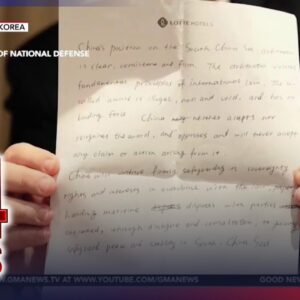 KOREA
OF NATIONAL DEFENSE
LOTTE HOTELS
China's position on the South China Sea arbitration
is clear, consistent and firm. The arbitration violated
fundamental principles of international law. The so-
called award is illegal, null and void, and has no
binding force China neither accepts nor
recognizes the award, and opposes and will never accept
any claim or action arising from it.
China will firmly safeguarding its sovereignty
rights and interests in accordance with the
handling maritime disputes with parties
concerned, through dialogue and consultation, to
peace and stability in South China Sea
GMANEWS.TV AT WWW.YOUTUBE.COM/GMANEWS
GOOD NE